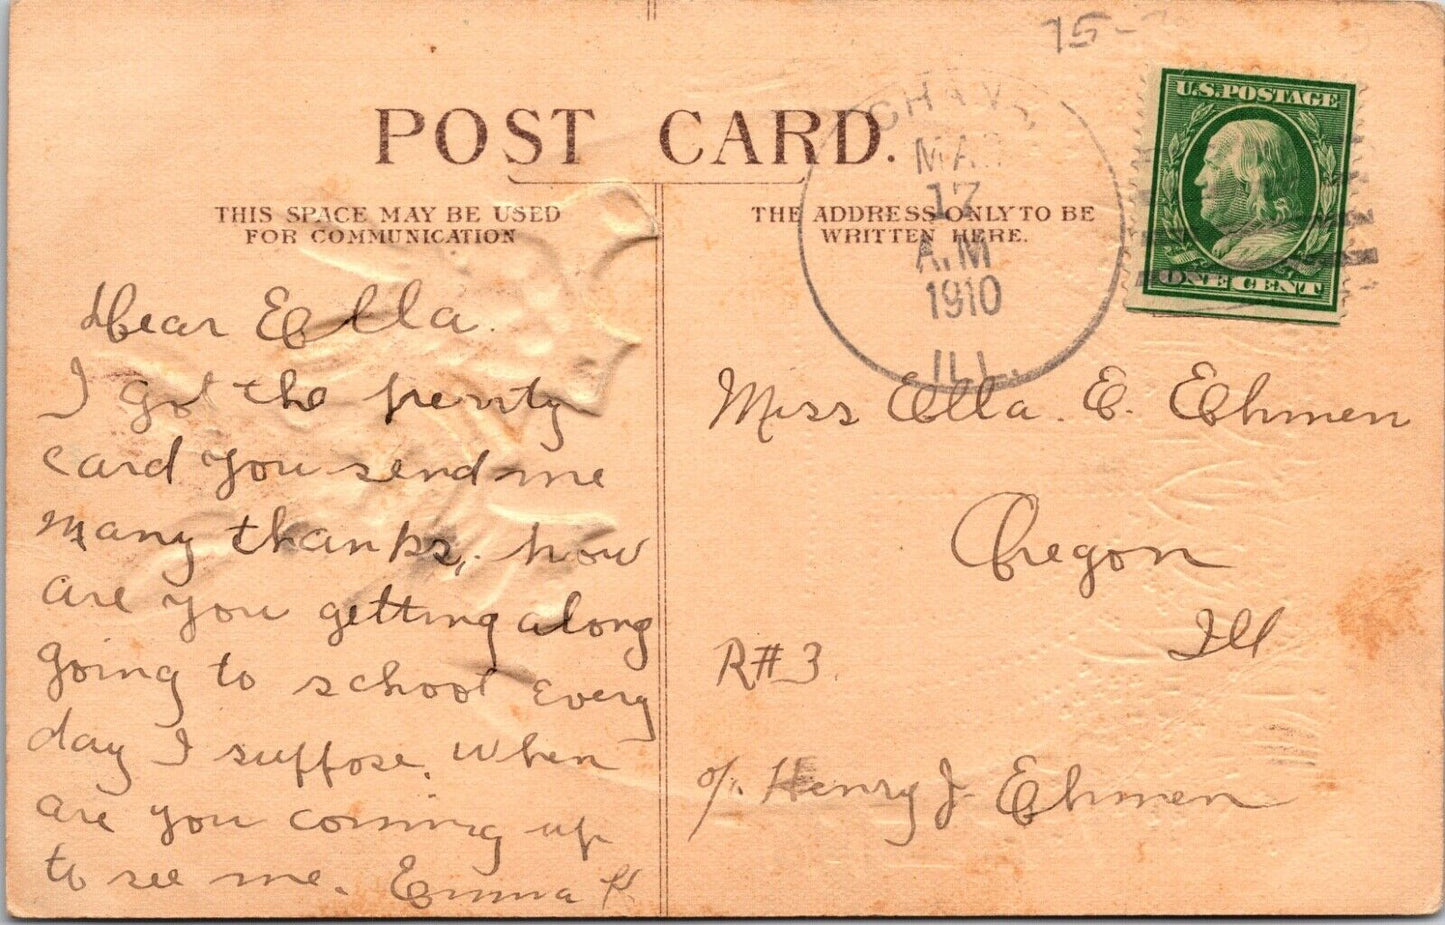 75-
POST CARD.
THIS SPACE MAY BE USED
FOR COMMUNICATION
THE ADDRESS ONLY TO BE
WRITTEN HERE.
MAR
17
A.M
1910
ILL.
U.S. POSTAGE
ONE CENT
Dear Ella.
I got the prenty
card you send me
many thanks, how
are you getting along
going to school Every
day I suffose. When
are you coming up
to see me. Emma K
Miss Ella. E. Ehmen
Oregon
Ill
R#3.
c/o. Henry J. Ehmen